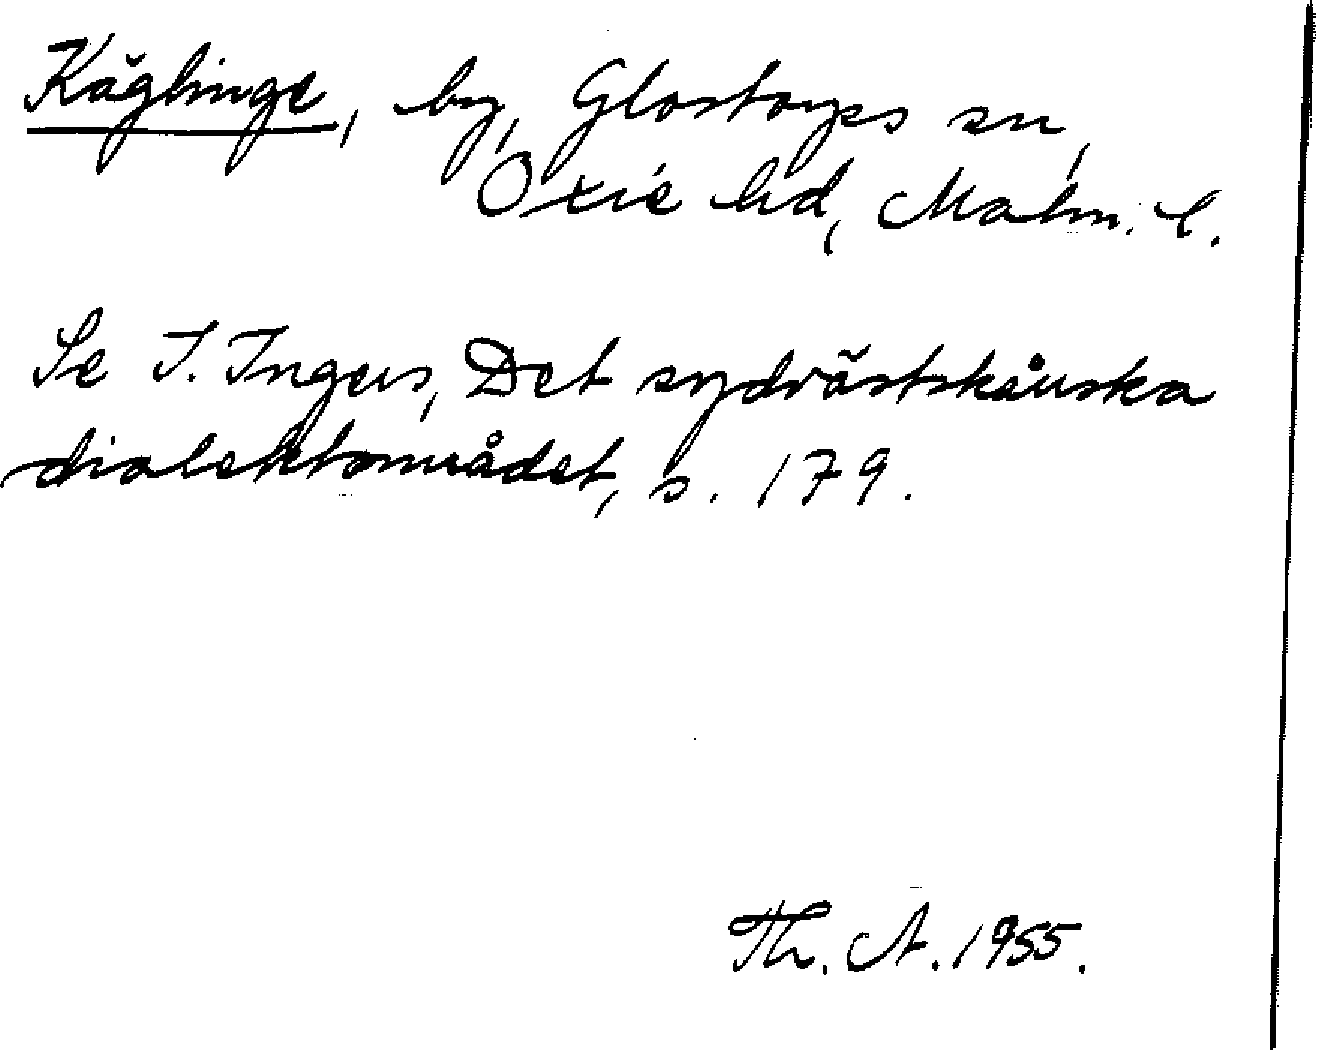 Käglinge, by, Glostorps sn,
Oxie hd, Malm. l.
Se I. Ingers, Det sydvästskånska
dialektområdet, s. 179.
Th. A. 1955.